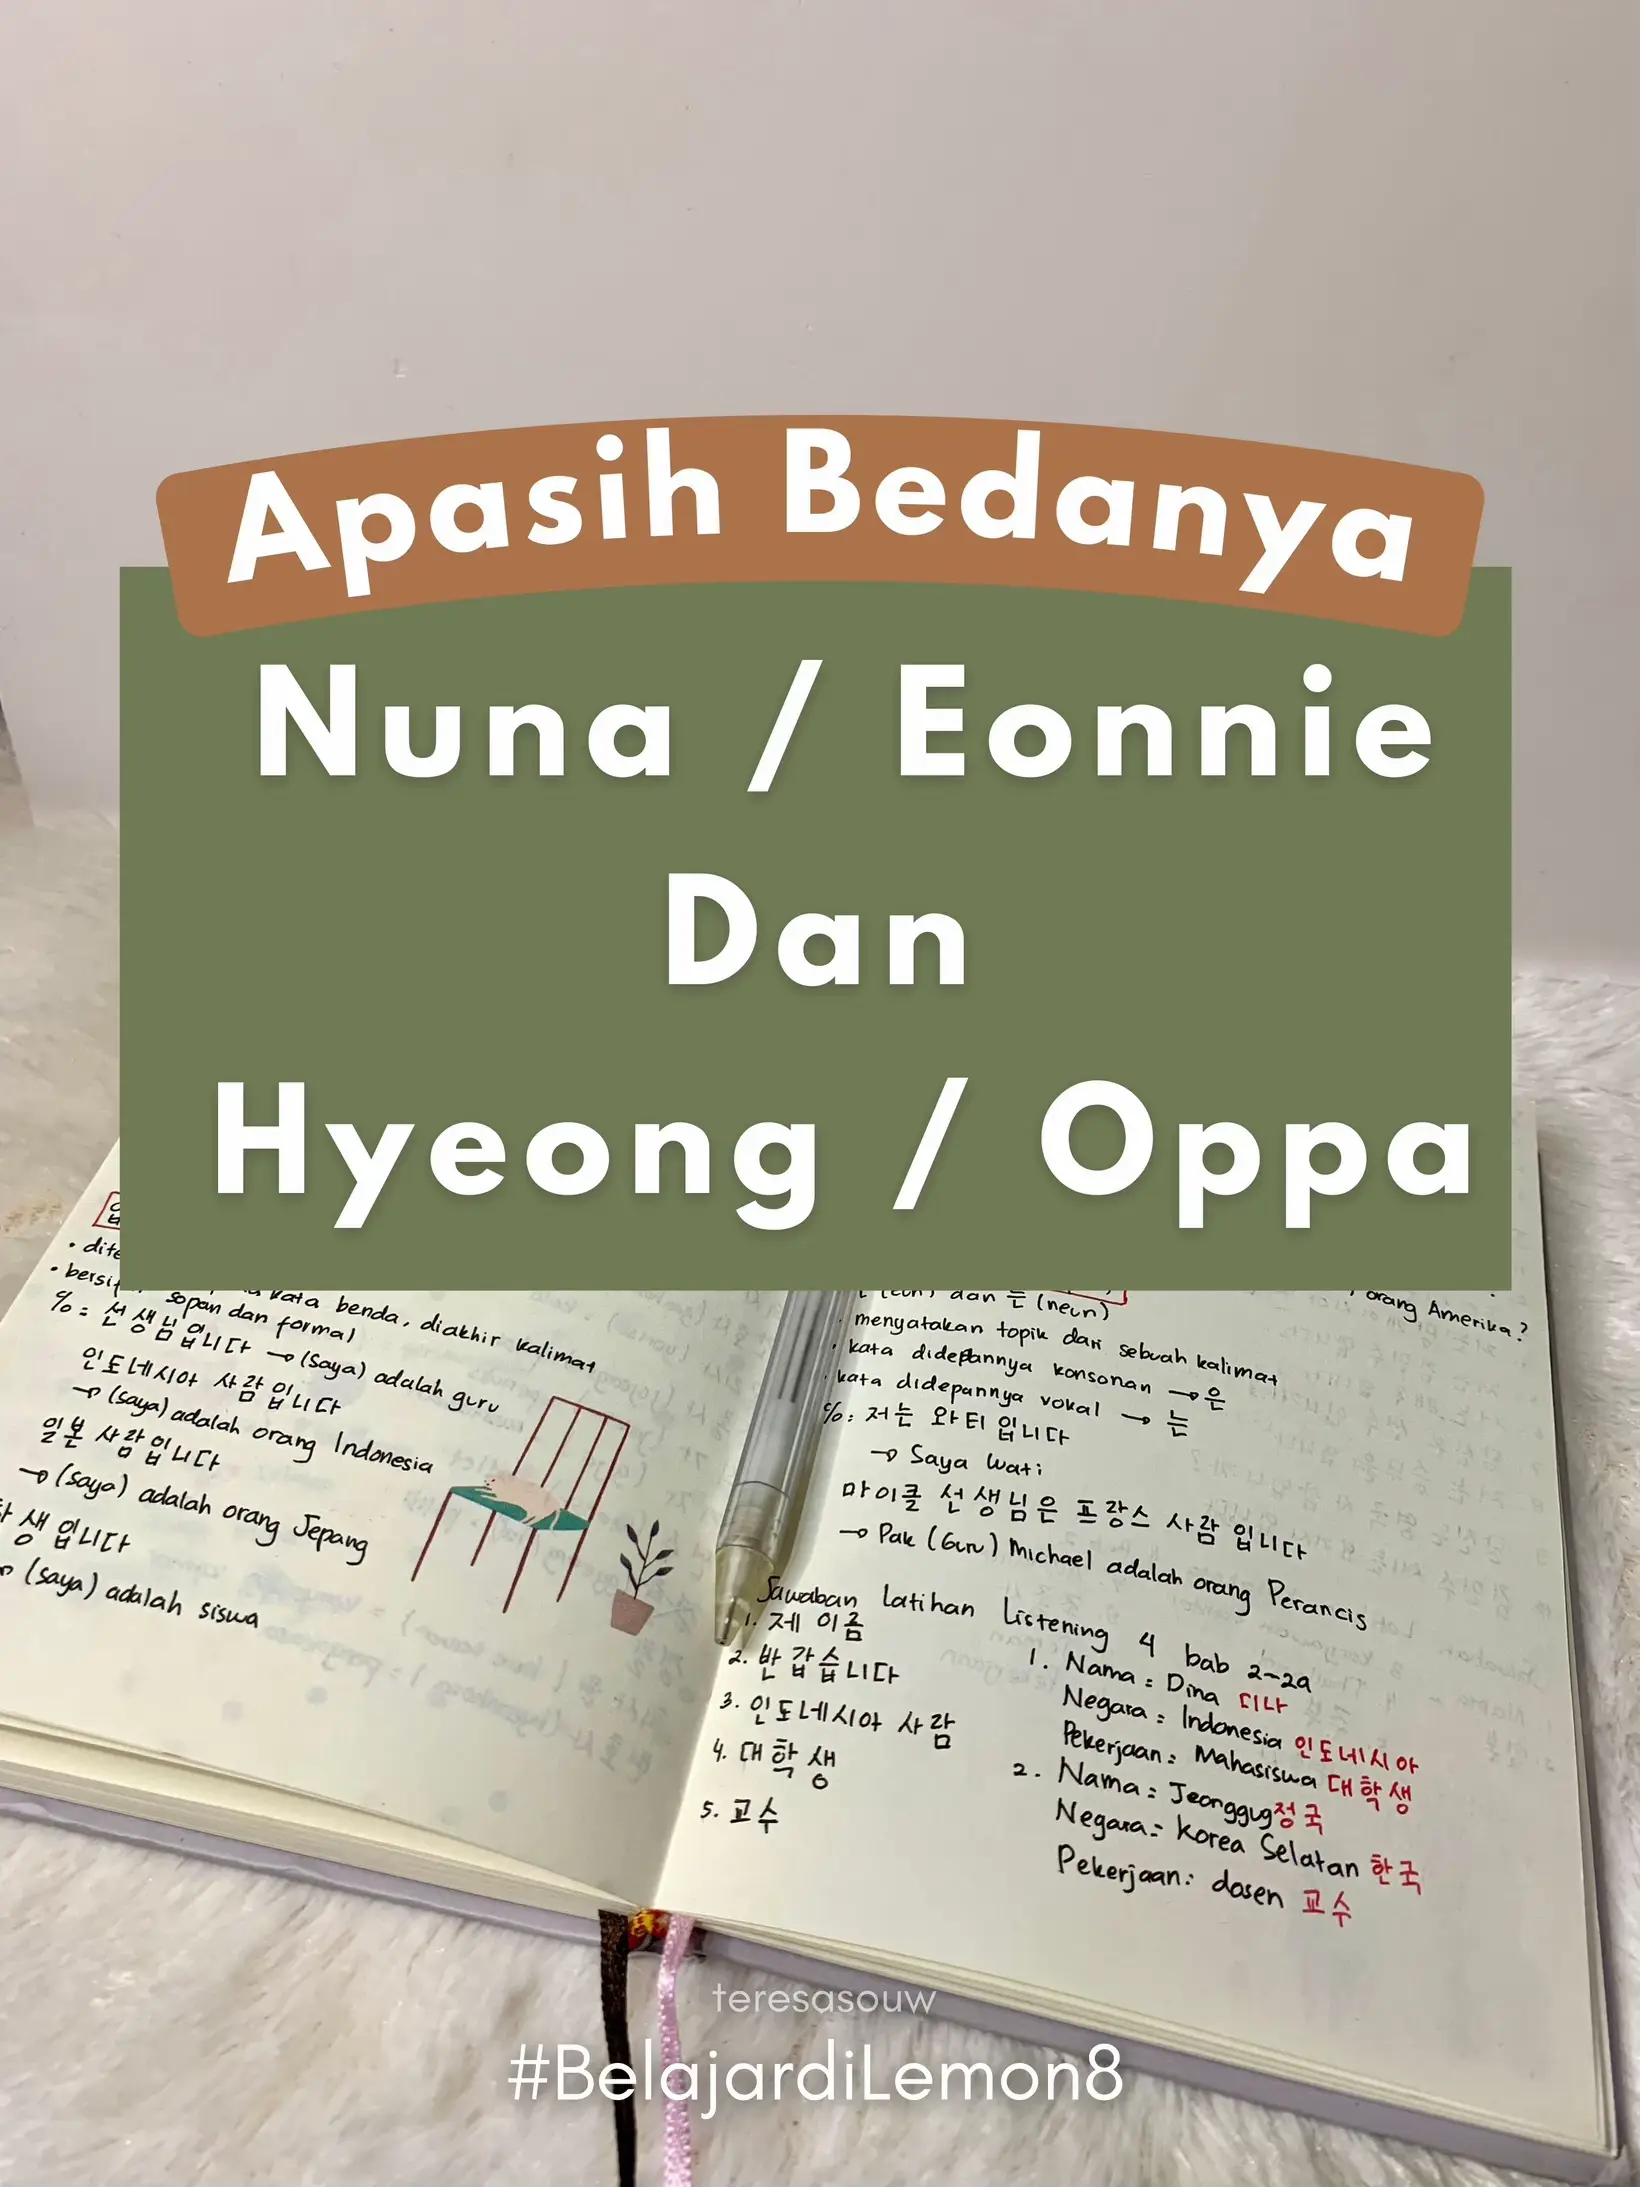 Apasih Bedanya
Nuna / Eonnie
Dan
Hyeong / Oppa
kata benda, diakhir kalimat
sopan dan formal
%= 선생님입니다 → (saya) adalah guru
인도네시아 사람입니다
→ (saya) adalah orang Indonesia
일본 사람입니다
→ (saya) adalah orang Jepang
생입니다
(saya) adalah siswa
orang Amerika?
dan 는 (neun)
menyatakan topik dari sebuah kalimat
kata didepannya konsonan → 은
kata didepannya vokal → 는
%: 저는 와티입니다
→ Saya Wati
마이클 선생님은 프랑스 사람입니다
→ Pak (Guru) Michael adalah orang Perancis
Jawaban Latihan Listening 4 bab 2-2a
1. 제 이름
2. 반갑습니다
3. 인도네시아 사람
4. 대학생
5. 교수
1. Nama = Dina 디나
Negara = Indonesia 인도네시아
Pekerjaan = Mahasiswa 대학생
2. Nama = Jeonggug 정국
Negara = Korea Selatan 한국
Pekerjaan: dosen 교수
teresasouw
#BelajardiLemon8